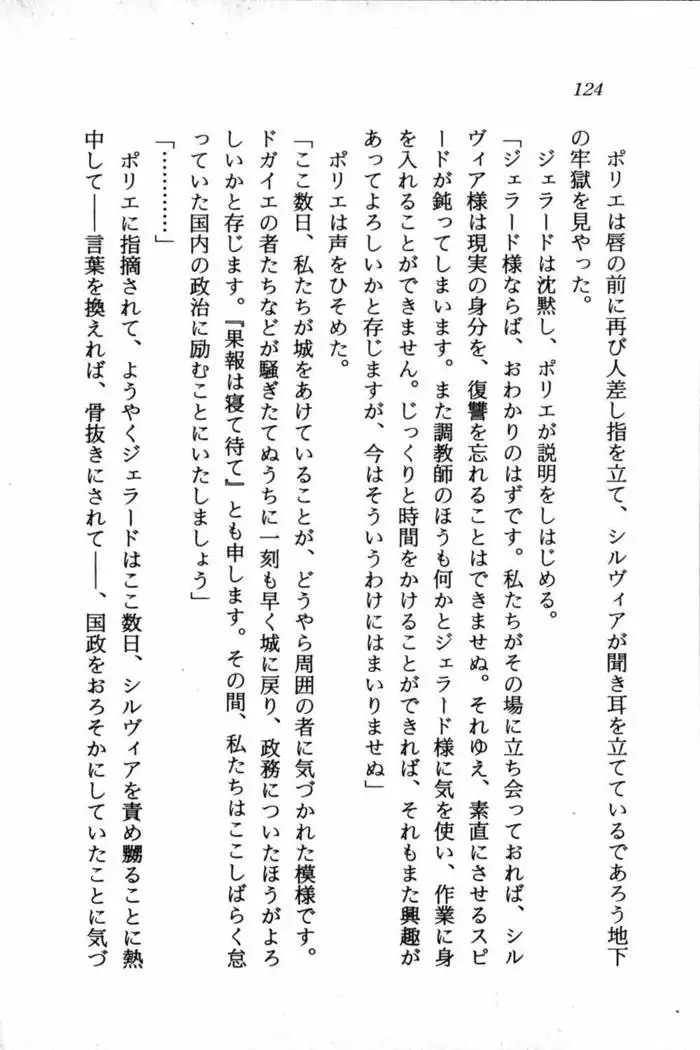 124
ポリエは唇の前に再び人差し指を立て、シルヴィアが聞き耳を立てているであろう地下
の牢獄を見やった。
ジェラードは沈黙し、ポリエが説明をしはじめる。
「ジェラード様ならば、おわかりのはずです。私たちがその場に立ち会っておれば、シル
ヴィア様は現実の身分を、復讐を忘れることはできませぬ。それゆえ、素直にさせるスピ
ードが鈍ってしまいます。また調教師のほうも何かとジェラード様に気を使い、作業に身
を入れることができません。じっくりと時間をかけることができれば、それもまた興趣が
あってよろしいかと存じますが、今はそういうわけにはまいりませぬ」
ポリエは声をひそめた。
「ここ数日、私たちが城をあけていることが、どうやら周囲の者に気づかれた模様です。
ドガイエの者たちなどが騒ぎたてぬうちに一刻も早く城に戻り、政務についたほうがよろ
しいかと存じます。『果報は寝て待て』とも申します。その間、私たちはここしばらく怠
っていた国内の政治に励むことにいたしましょう」
「…………」
ポリエに指摘されて、ようやくジェラードはここ数日、シルヴィアを責め嬲ることに熱
中して――言葉を換えれば、骨抜きにされて――、国政をおろそかにしていたことに気づ